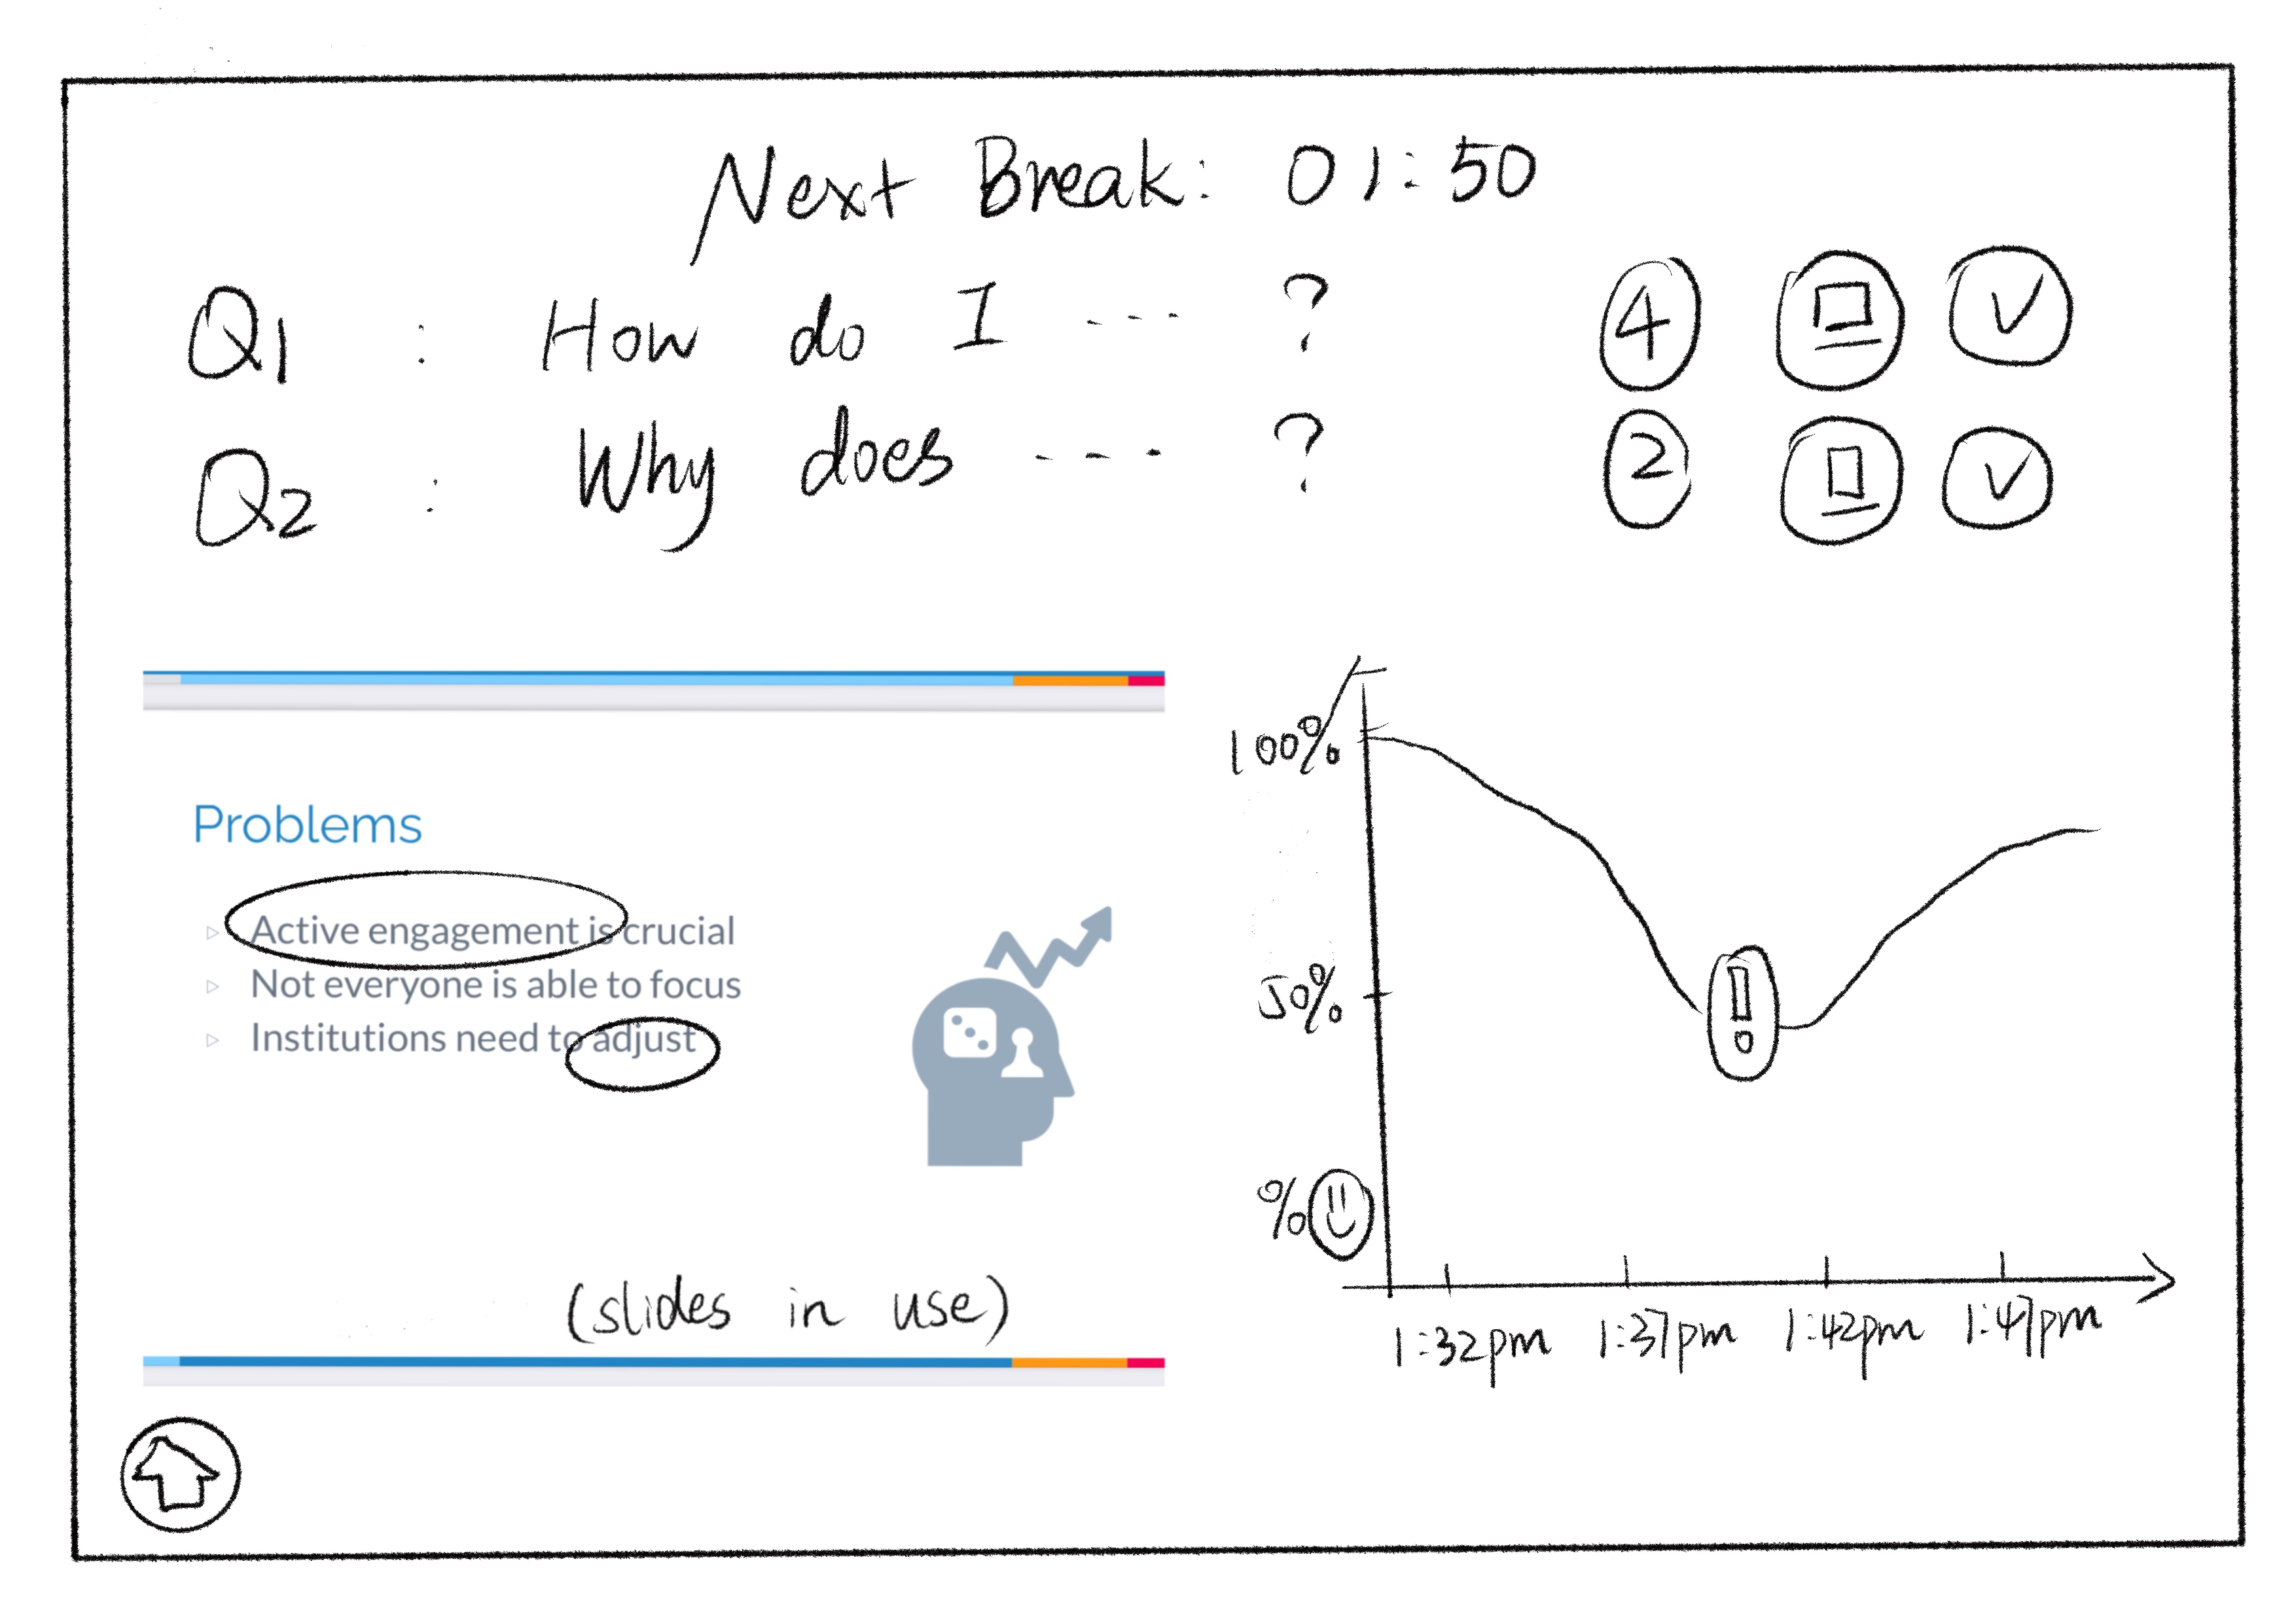 Next Break: 01:50
Q1 : How do I --- ? 4
Q2 : Why does --- ? 2
Problems
Active engagement is crucial
Not everyone is able to focus
Institutions need to adjust
(slides in use)
100%
50%
!
%
1:32pm 1:37pm 1:42pm 1:47pm